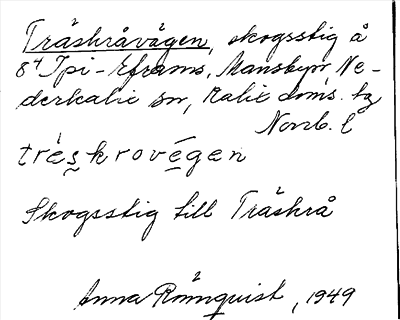 Träskråvägen, skogsstig å
8⁴ Ipi-Eframs, Mansbyn, Ne-
derkalix sn, Kalix doms. tg
Norrb. l
tré̀skrovégen
Skogsstig till Träskrå
Anna Rönnquist, 1949